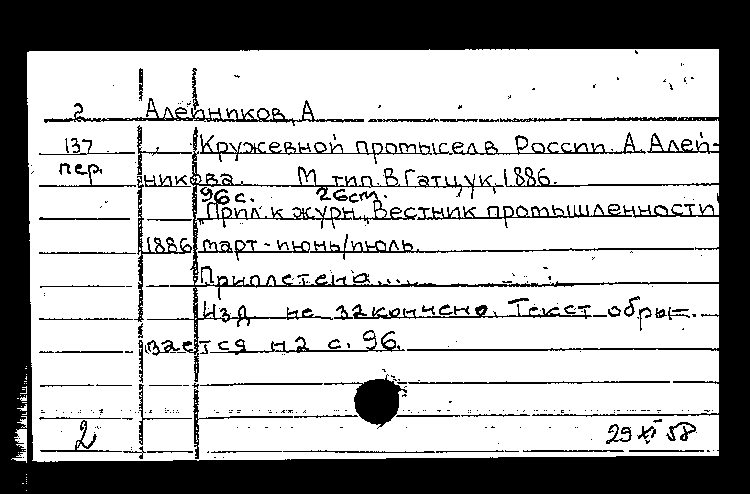 2 Алейников, А
137 Кружевной промысел в России. А. Алей-
пер. никова. М, тип. В. Гатцук, 1886.
96 с. 26 см.
"Прил. к журн. "Вестник промышленности"
1886 март-июнь/июль.
Приплетена....
Изд. не закончено. Текст обры-
вается на с. 96.
2 29 XI 58